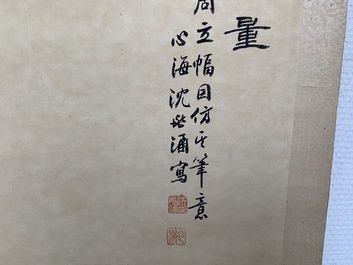 量
周立幅因仿其筆意
心海沈塗涌寫